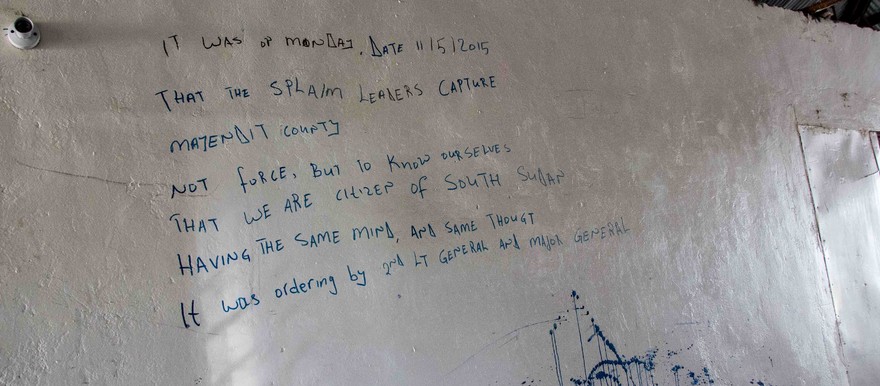 IT WAS OP MONDAY, DATE 11/5/2015
THAT THE SPLA/M LEADERS CAPTURE
MAYENDIT COUNTY
NOT FORCE, BUT TO KNOW OURSELVES
THAT WE ARE CITIZEN OF SOUTH SUDAN
HAVING THE SAME MIND, AND SAME THOUGT
It was ordering by 2nd LT GENERAL AND MAJOR GENERAL